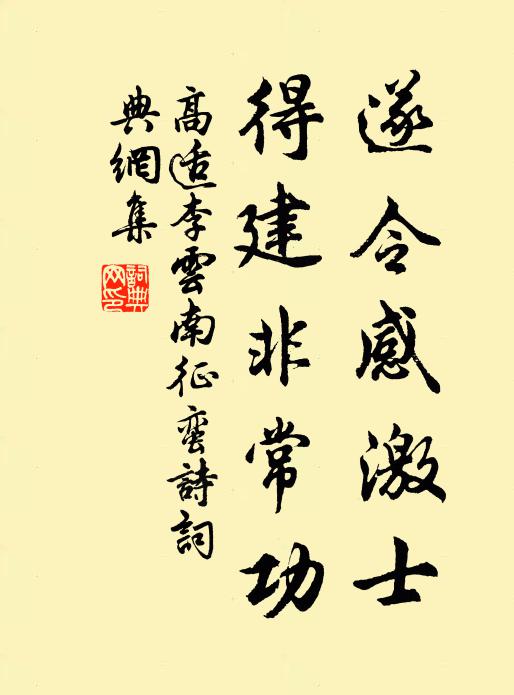 遂令感激士
得建非常功
高适李雲南征蠻詩詞
典網集
詞典网印